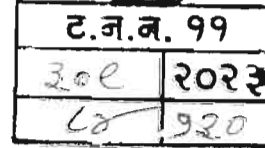 ट.न.न. ११
३०९ २०२३
८४ १२०